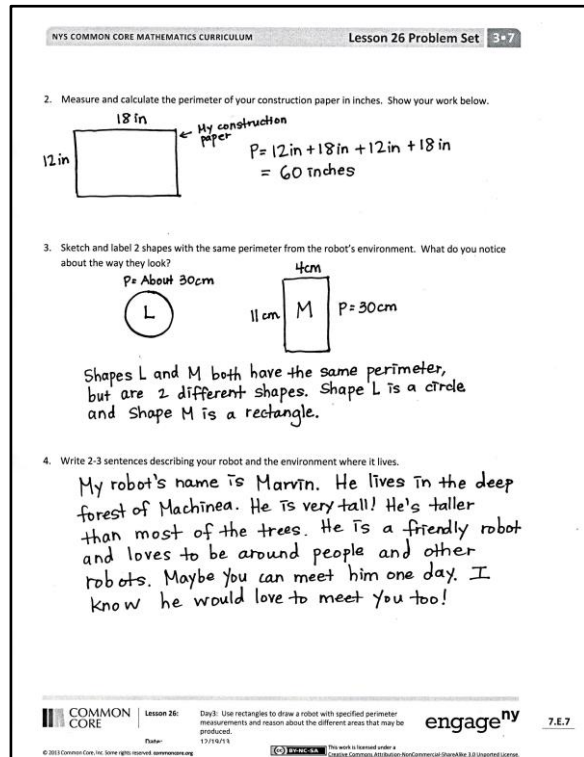 NYS COMMON CORE MATHEMATICS CURRICULUM
Lesson 26 Problem Set 3•7
2. Measure and calculate the perimeter of your construction paper in inches. Show your work below.
18 in
My construction
paper
12 in
P= 12in +18in +12in +18in
= 60 inches
3. Sketch and label 2 shapes with the same perimeter from the robot's environment. What do you notice
about the way they look?
P= About 30cm
L
4cm
11 cm
M
P=30cm
Shapes L and M both have the same perimeter,
but are 2 different shapes. Shape L is a circle
and Shape M is a rectangle.
4. Write 2-3 sentences describing your robot and the environment where it lives.
My robot's name is Marvin. He lives in the deep
forest of Machinea. He is very tall! He's taller
than most of the trees. He is a friendly robot
and loves to be around people and other
robots. Maybe you can meet him one day. I
know he would love to meet you too!
COMMON
CORE
Lesson 26:
Day3: Use rectangles to draw a robot with specified perimeter
measurements and reason about the different areas that may be
produced.
Date:
12/19/13
engageny
7.E.7
© 2013 Common Core, Inc. Some rights reserved. commoncore.org
(cc) BY-NC-SA
This work is licensed under a
Creative Commons Attribution-NonCommercial-ShareAlike 3.0 Unported License.